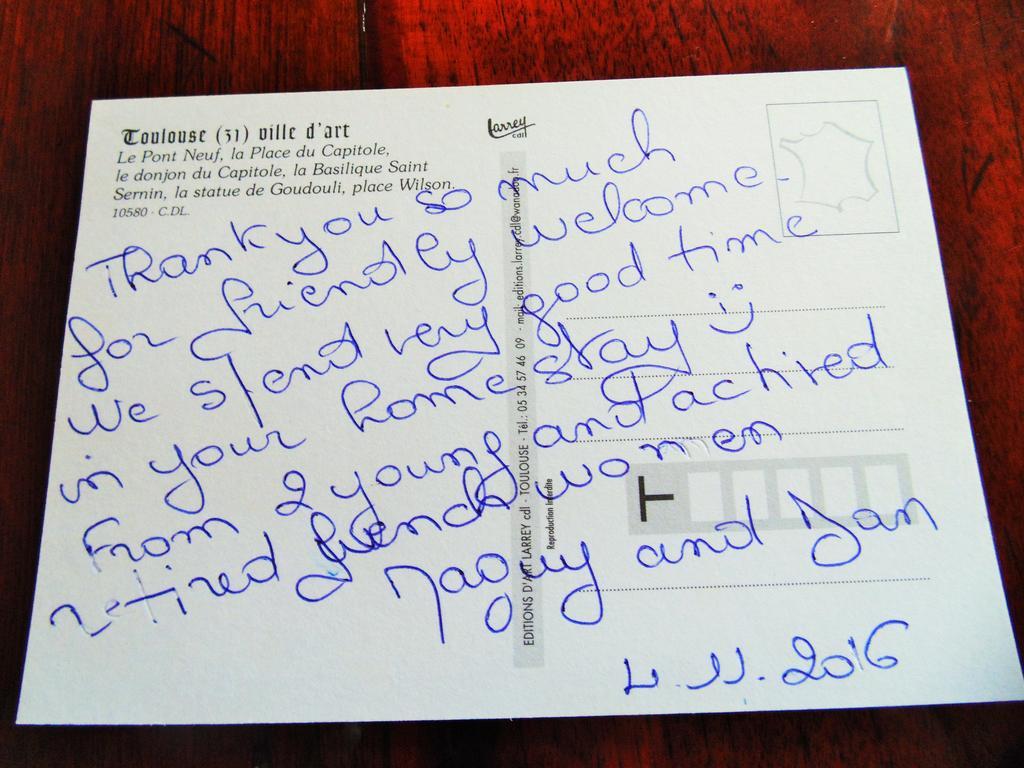 Toulouse (31) ville d'art
Le Pont Neuf, la Place du Capitole,
le donjon du Capitole, la Basilique Saint
Sernin, la statue de Goudouli, place Wilson.
10580 - C.DL.
Larrey
cdl
Thank you so much
for friendly welcome.
We spent very good time
in your home stay
From 2 young and
retired french women
Maguy and Dan
4.11.2016
EDITIONS D'ART LARREY cdl - TOULOUSE - Tél.: 05 34 57 46 09 - mail: editions.larrey.cdl@wanadoo.fr
Reproduction Interdite